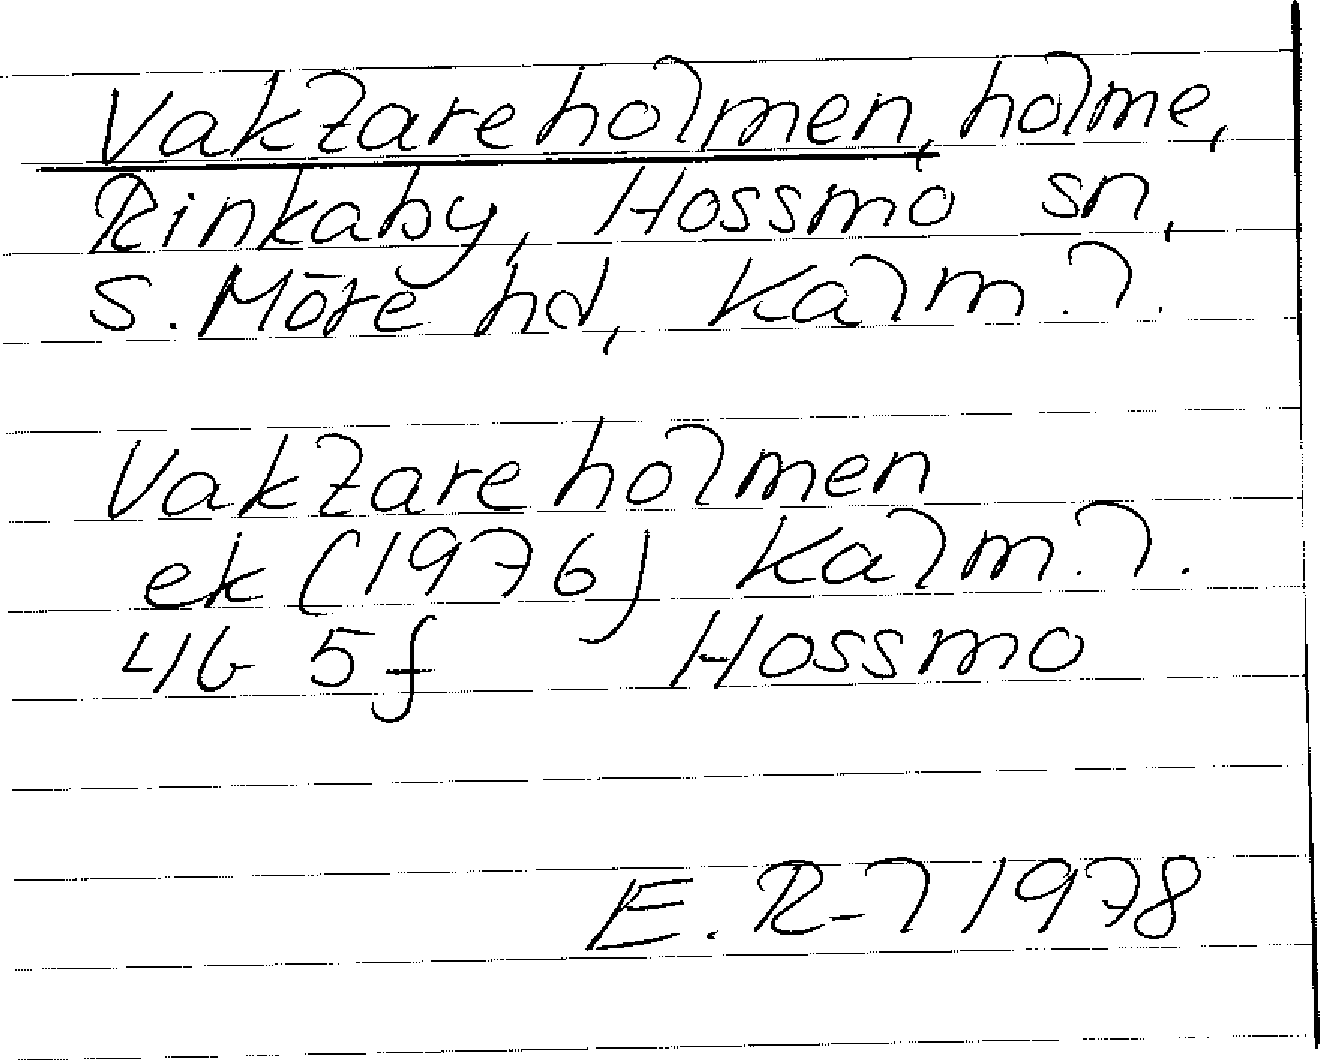 Vaktareholmen, holme,
Rinkaby, Hossmo sn,
S. Möre hd, Kalm. l.
Vaktareholmen
ek (1976) Kalm. l.
4G 5f Hossmo
E. R-l 1978